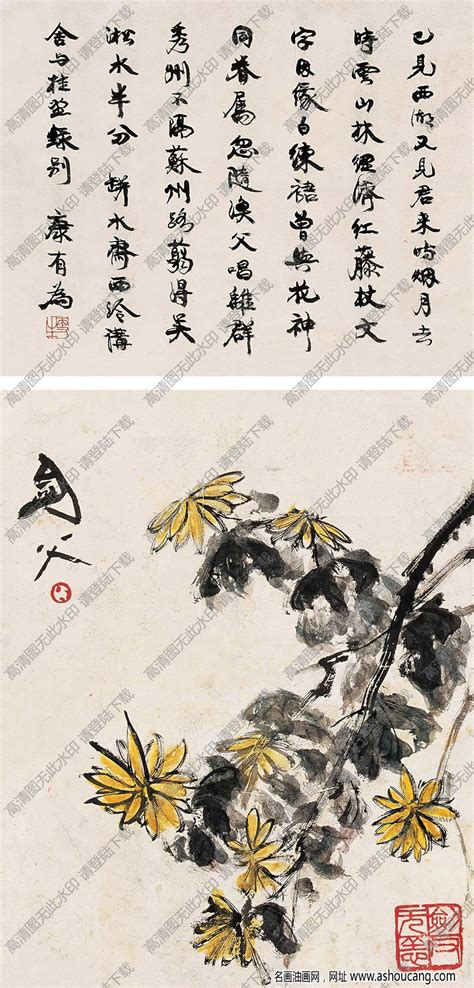 已見西湖又見君来時烟月去
時雲山扶經濟紅藤杖文
字因緣白練裙曾與花神
同眷屬忽隨漁父唱離群
秀州不隔蘇州路翦得吴
淞水半分 缾水齋西泠講
舍與桂録别 康有為
劍父
高清图无此水印 请登陆下载
名画油画网，网址 www.ashoucang.com